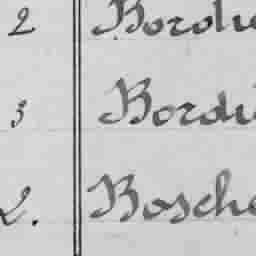 2 Bordi
3 Bordi
2. Bosche